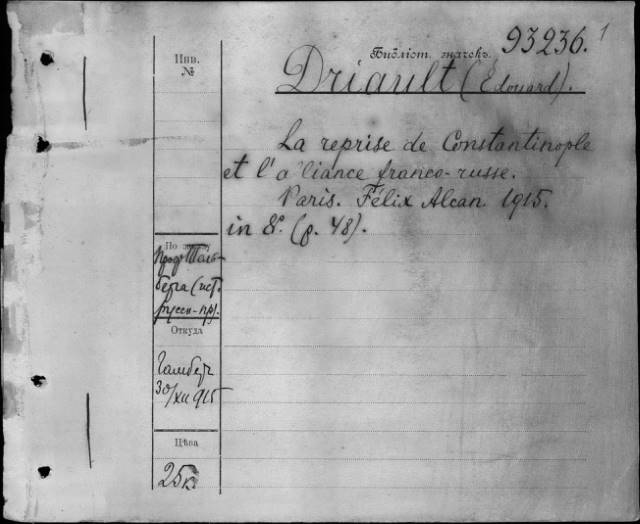 93236. 1
Инв.
№
Библіот. значекъ
Driault (Edouard).
La reprise de Constantinople
et l'alliance franco-russe.
Paris. Félix Alcan. 1915.
in 8º. (p. 48).
По
проф. Таль-
берга (ист.
русск. пр).
Откуда
30/XII 915
Цѣна
25к